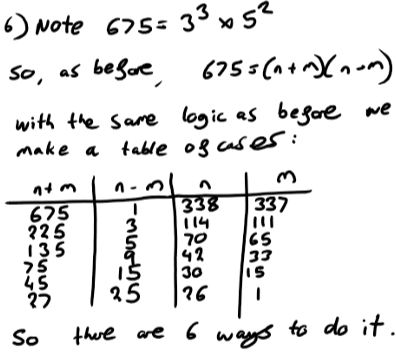 6) Note 675 = 3³ × 5²
So, as before, 675 = (n+m)(n-m)
with the same logic as before we
make a table of cases:
n+m | n-m | n | m
675 | 1 | 338 | 337
225 | 3 | 114 | 111
135 | 5 | 70 | 65
75 | 9 | 42 | 33
45 | 15 | 30 | 15
27 | 25 | 26 | 1
So there are 6 ways to do it.